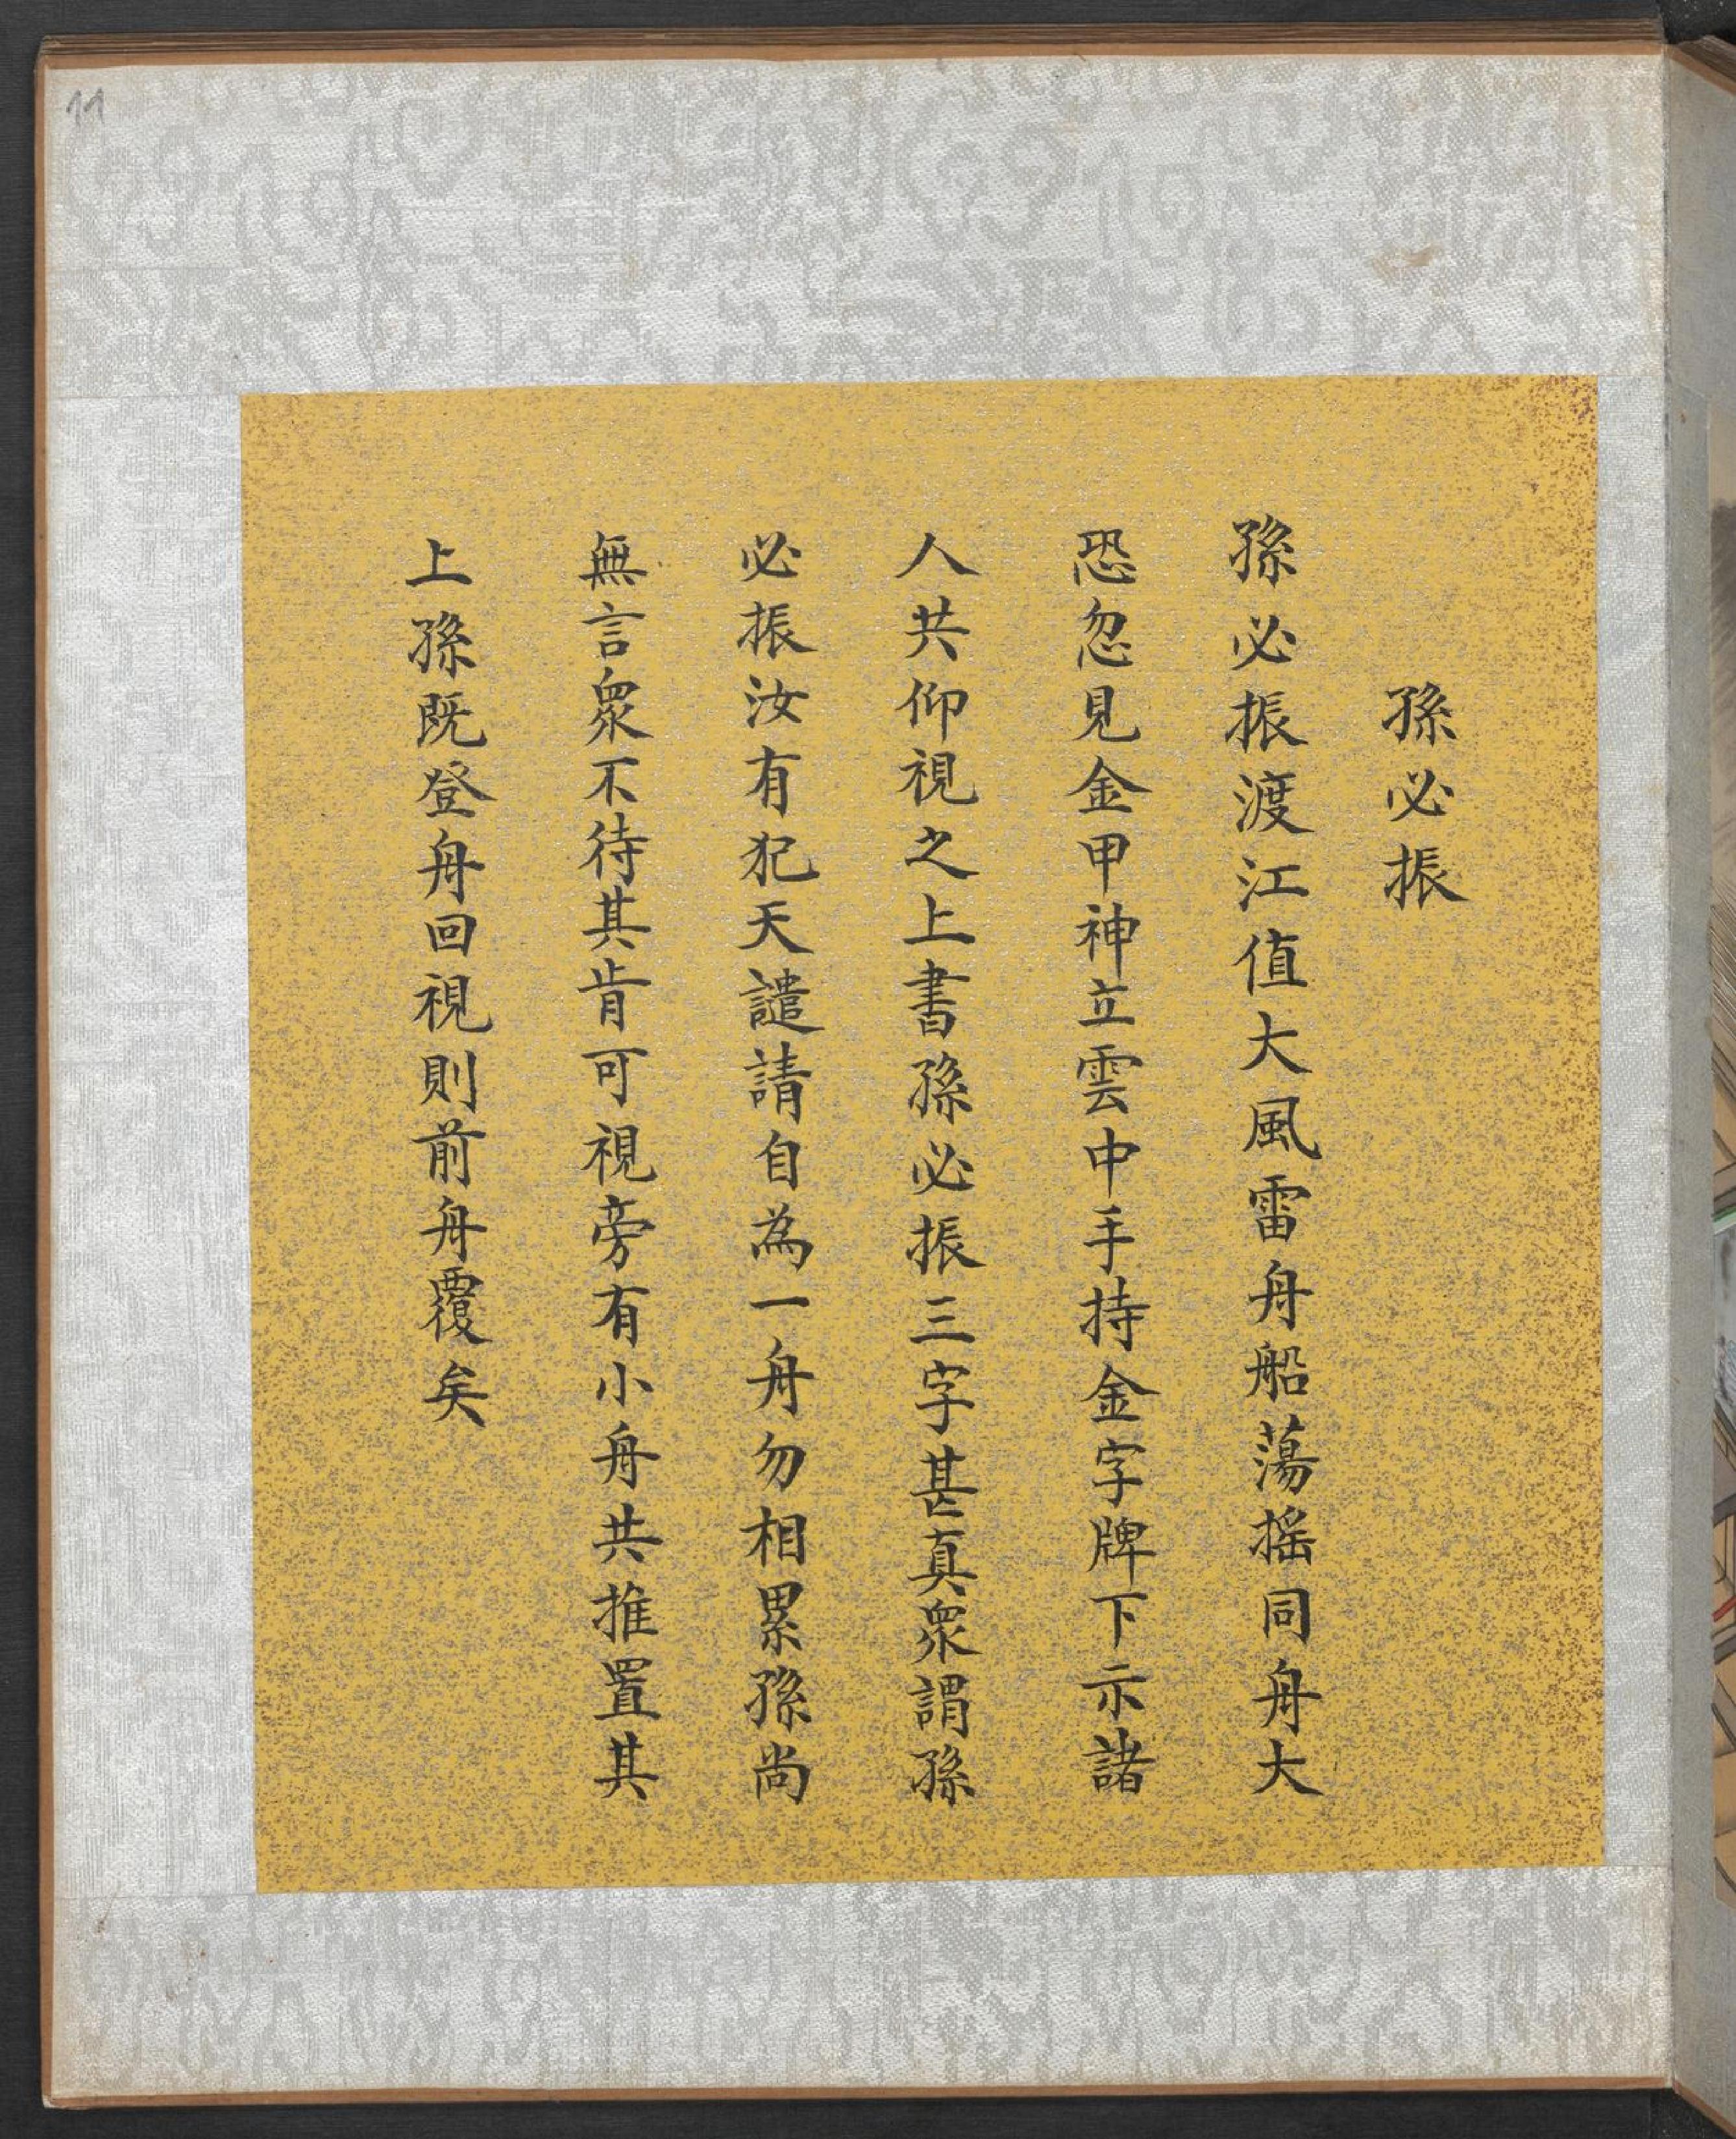 11
孫必振
孫必振渡江值大風雷舟船蕩搖同舟大
恐忽見金甲神立雲中手持金字牌下示諸
人共仰視之上書孫必振三字甚真衆謂孫
必振汝有犯天譴請自為一舟勿相累孫尚
無言衆不待其肯可視旁有小舟共推置其
上孫既登舟回視則前舟覆矣